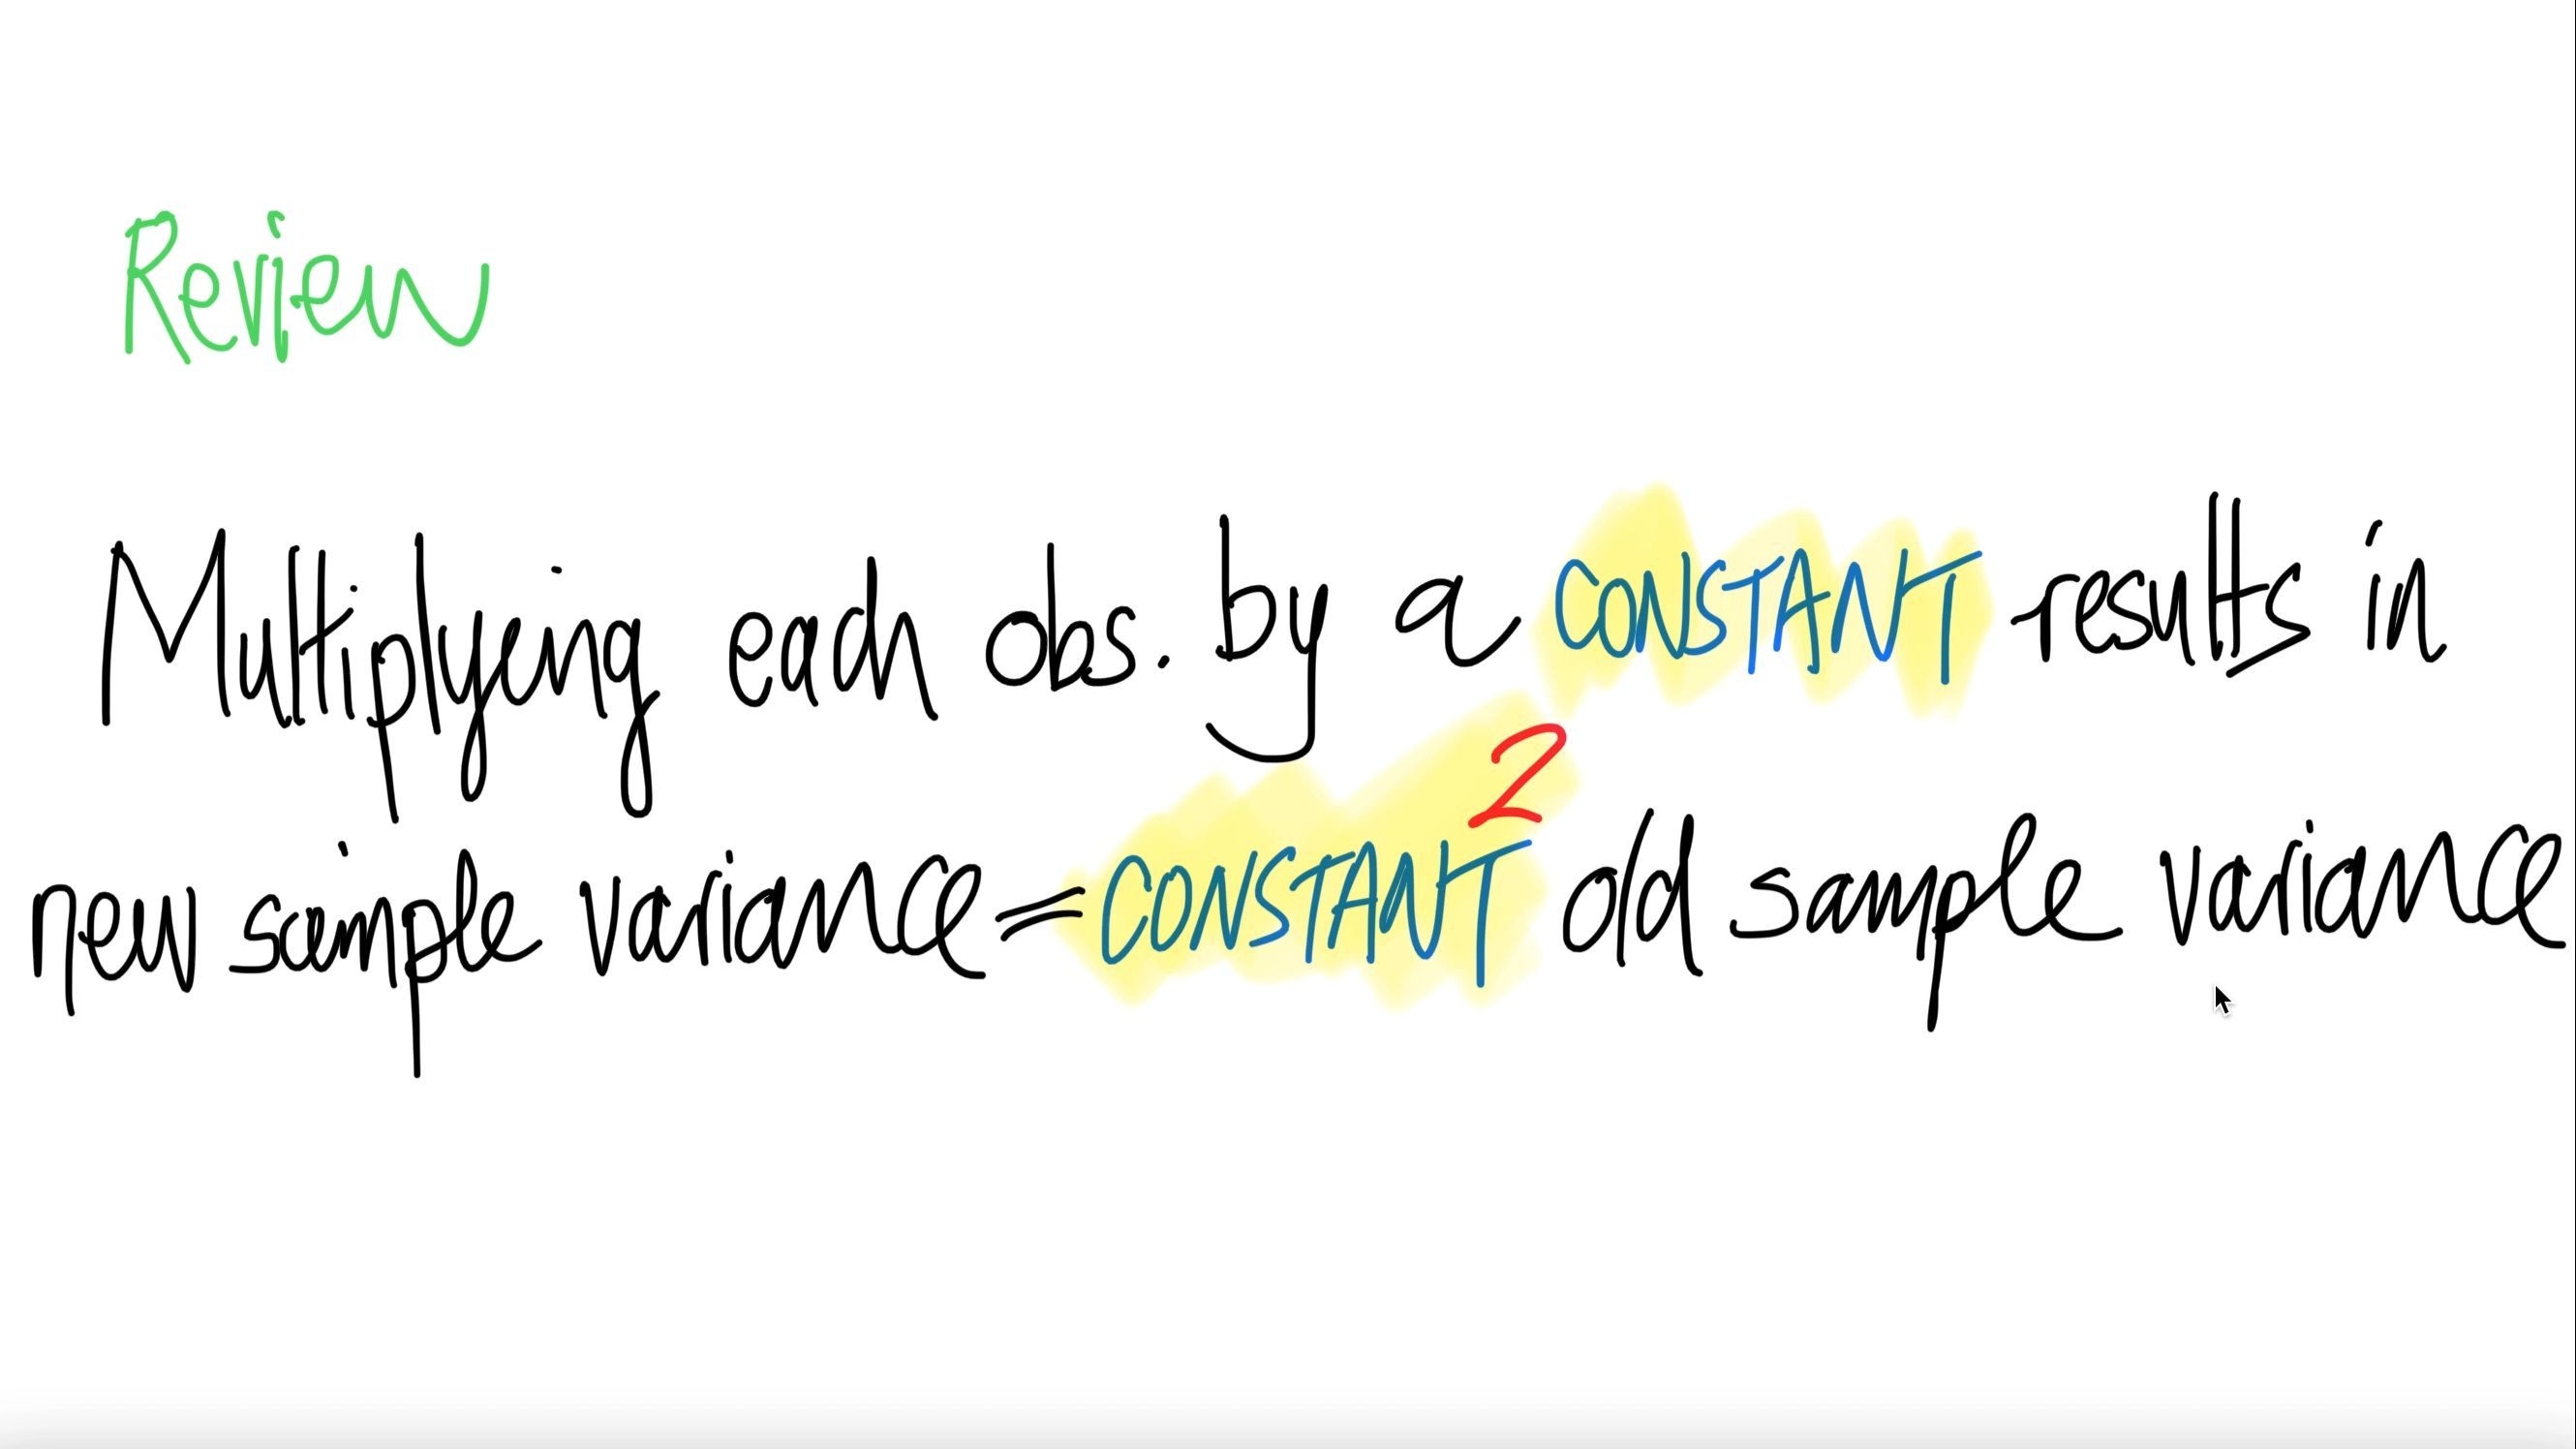 Review
Multiplying each obs. by a CONSTANT results in
new sample variance = CONSTANT² old sample variance